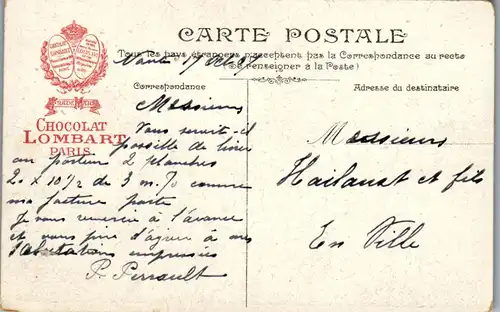 CARTE POSTALE
Tous les pays étrangers n'acceptent pas la Correspondance au recto
(Se renseigner à la Poste)
Correspondance
Adresse du destinataire
CHOCOLAT
LOMBART
PARIS
Messieurs
Vous serait-il
possible de livrer
au porteur 2 planches
20 x 10 1/2 de 3 m. 70 comme
ma facture porte
Je vous remercie à l'avance
et vous prie d'agréer à mes
Salutations empressées
P. Perrault
Messieurs
et fils
En Ville